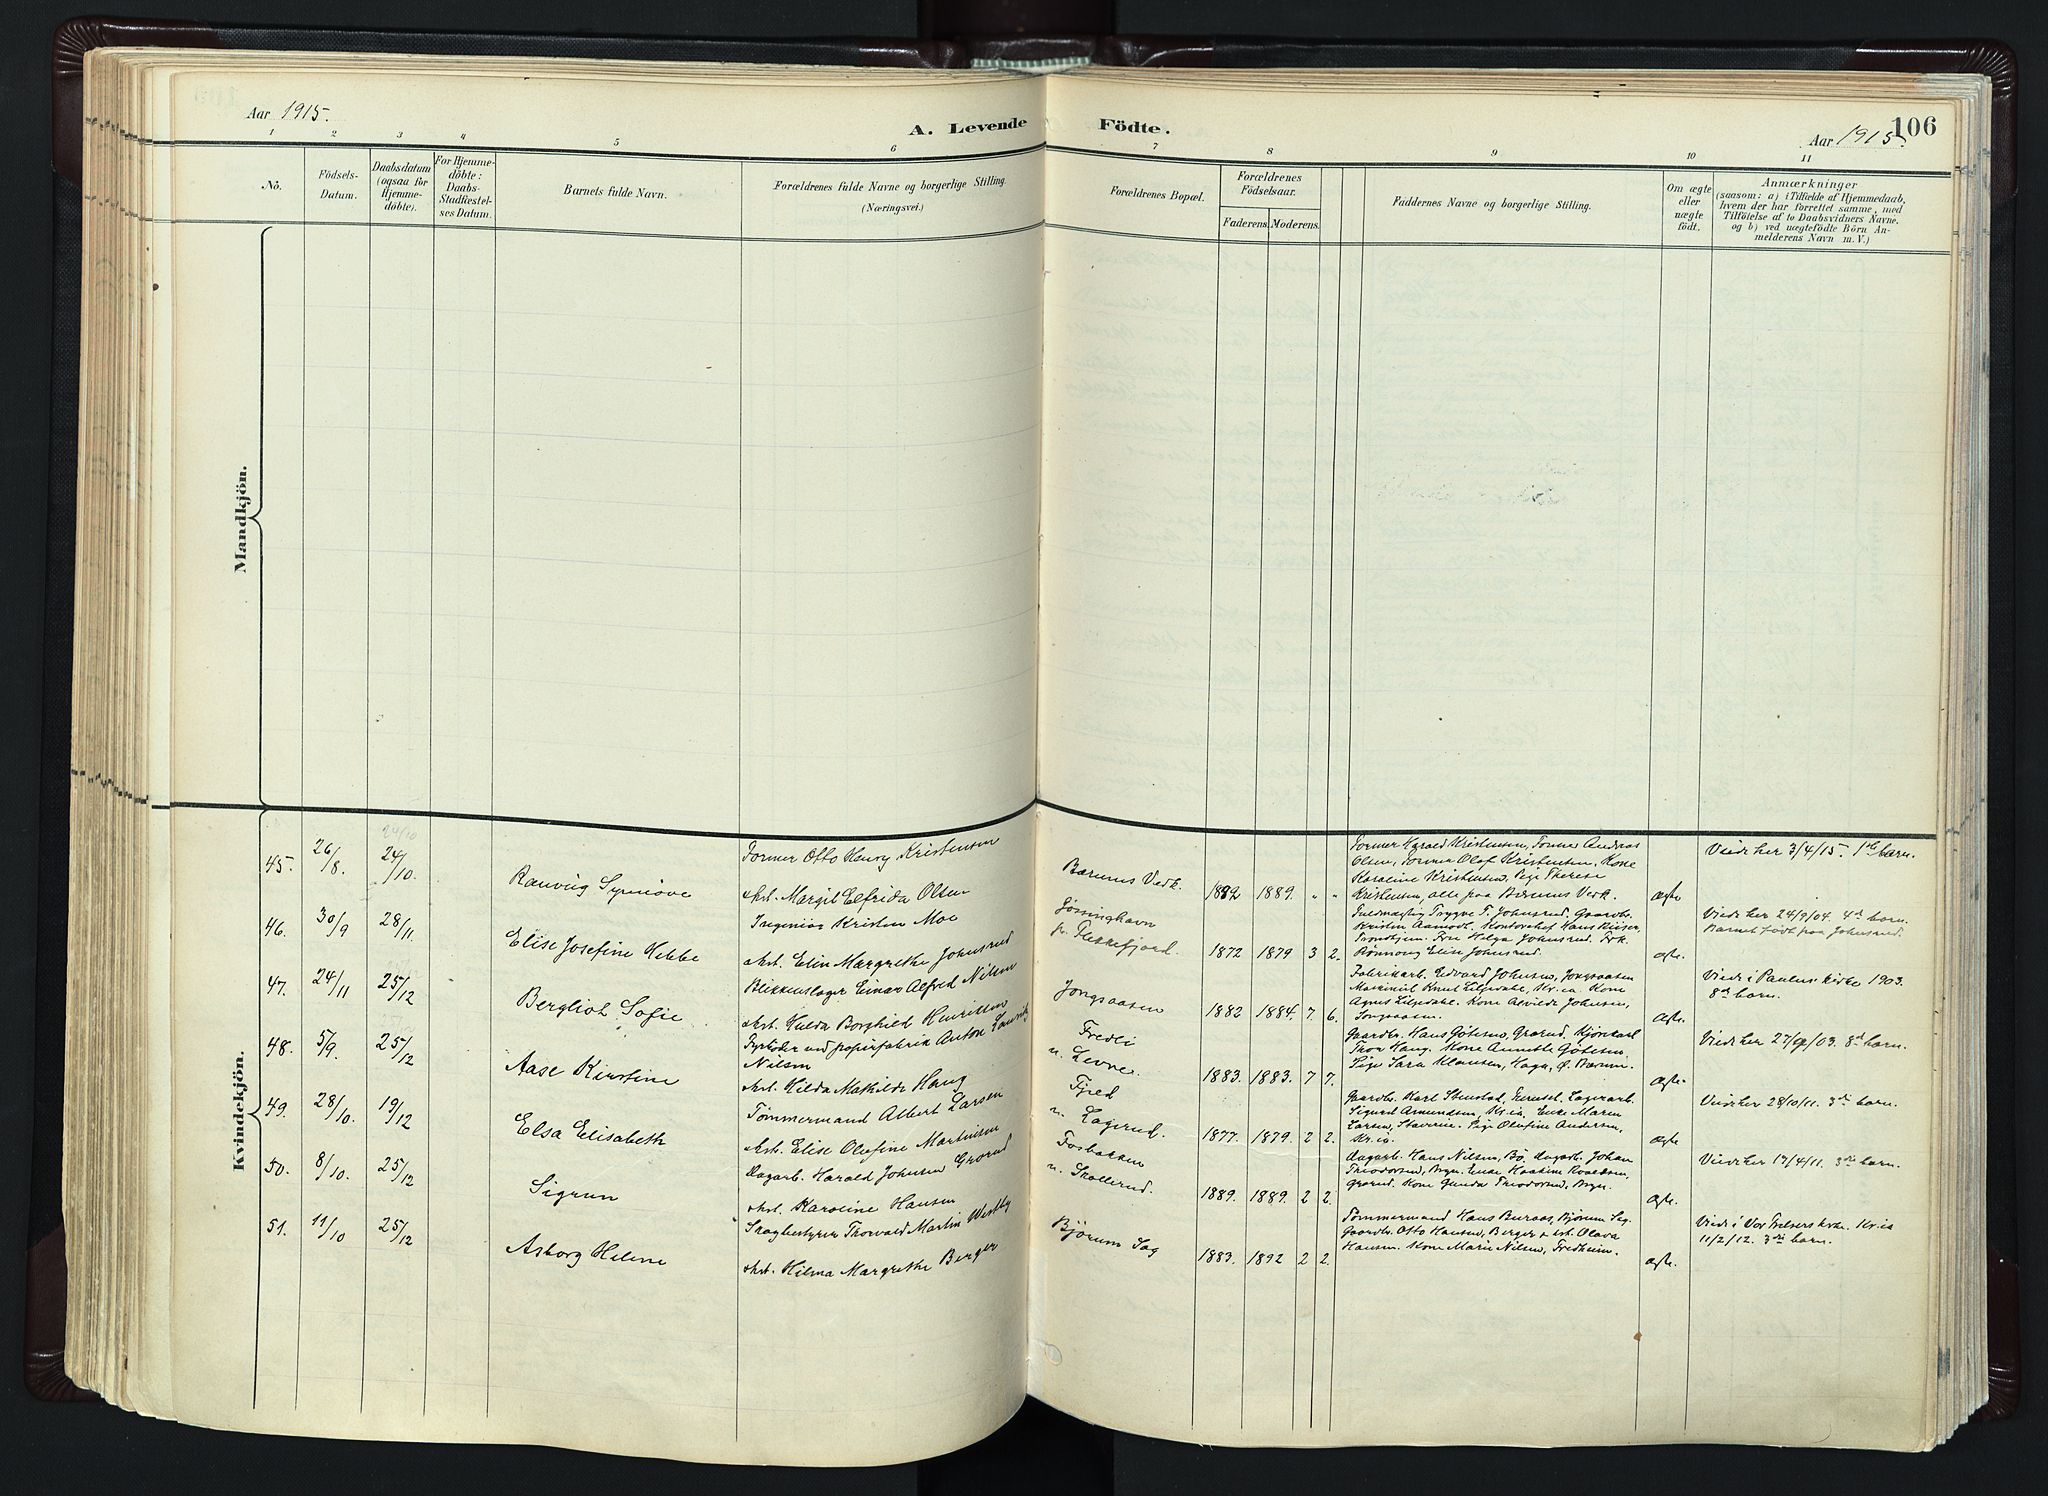 Aar 1915.
A. Levende Födte.
106
Aar 1915.
1 2 3 4 5 6 7 8 9 10 11
No.
Födsels-Datum.
Daabsdatum (ogsaa for Hjemmedöbte).
For Hjemmedöbte: Daabs-Stadfæstelses Datum.
Barnets fulde Navn.
Forældrenes fulde Navne og borgerlige Stilling.
(Næringsvei.)
Forældrenes Bopæl.
Forældrenes Födselsaar.
Faderens. Moderens.
Faddernes Navne og borgerlige Stilling.
Om ægte eller uægte födt.
Anmærkninger
(saasom: a) i Tilfælde af Hjemmedaab,
hvem der har forrettet samme, med
Tilföielse af to Daabsvidners Navne,
og b) ved uægtefödte Börn Anmelderens Navn m. V.)
Mandkjön.
Kvindekjön.
24/10
45. 26/8. 24/10. Ranveig Synnöve
Former Otto Henry Kristensen
Hst. Margit Elfrida Olsen
Bærums Verk. 1892 1889. " "
Former Harald Kristensen, Former Andreas
Olsen, Former Olaf Kristensen, Kone
Karoline Kristensen, Pige Therese
Kristensen, alle paa Bærums Verk.
Ægte
Viede her 3/4/15. 1ste barn.
46. 30/9 28/11. Elise Josefine Hebbe
Ingeniør Kristen Moe
Hst. Elin Margrethe Johnsrud
Jøssinghavn
pr. Flekkefjord. 1872 1879 3 2.
Fuldmægtig Trygve F. Johnsrud, Gaardbr.
Kristen Aamodt. Kontorchef Hans Kiær,
Trondhjem. Frue Helga Johnsrud. Frk.
Rönnaug Elise Johnsrud.
Ægte.
Viede her 24/9/04. 4de barn.
Barnet født paa Johnsrud.
47. 24/11 25/12 Bergliot Sofie
Blikkenslager Einar Alfred Nilsen
Hst. Hulda Borghild Henriksen
Jongsaasen 1882 1884. 7. 6.
Fabrikarb. Edvard Johnsen, Jongsaasen
Maskinist Knut Liljedahl, Kr.ia. Kone
Agnes Liljedahl. Kone Alvilde Johnsen,
Jongsaasen.
Ægte.
Viede i Paulus kirke 1903.
8de barn.
48. 5/9. 25/12 Aase Kirstine
Fyrbøder ved papirfabrik Anton Lauritz
Nilsen
Hst. Hilda Mathilde Haug
Fredli
u. Levre. 1883. 1883. 7 7.
Gaardbr. Hans Götesen, Grorud, Kjörekarl
Thor Haug. Kone Annette Götesen.
Pige Sara Klausen, Haga, Ø. Bærum.
Ægte.
Viede her 27/9/03. 8de barn.
49. 28/10. 19/12 Elsa Elisabeth
Tömmermand Albert Larsen
Hst. Elise Olufine Martinsen
Fjeld
u. Lagerud. 1877. 1879. 2 2.
Gaardbr. Karl Stenstad, Lagerarb.
Sigurd Amundsen, Kr.ia. Enke Maren
Larsen, Stavern. Pige Olufine Andersen,
Kr.ia.
Ægte
Viede her 28/10/11. 3die barn.
50. 8/10. 25/12 Sigrun
Dagarb. Harald Johnsen Grorud
Hst. Karoline Hansen
Fosbakken
u. Skollerud. 1889. 1889. 2 2.
Dagarb. Hans Nilsen, Bö. Dagarb. Johan
Theodorsen, Bryn. Enke Roaldsen
Grorud. Kone Gunda Theodorsen, Bryn.
Ægte.
Viede her 17/4/11. 3die barn.
51. 11/10 25/12 Asborg Helene
Sagbestyrer Thorvald Martin Westby
Hst. Hilma Margrethe Berger
Bjørum Sag 1883. 1892 2 2.
Tömmermand Hans Buraas, Bjørum Sag.
Gaardbr. Otto Hansen, Berger & Hst. Olava
Hansen. Kone Marie Nilsen, Fredheim.
Ægte.
Viede i Vor Frelsers kirke Kr.ia
11/2/12. 3die barn.